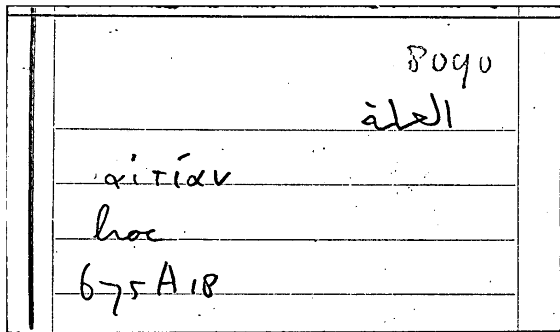 8090
العلة
αἰτίαν
hoc
675 A 18